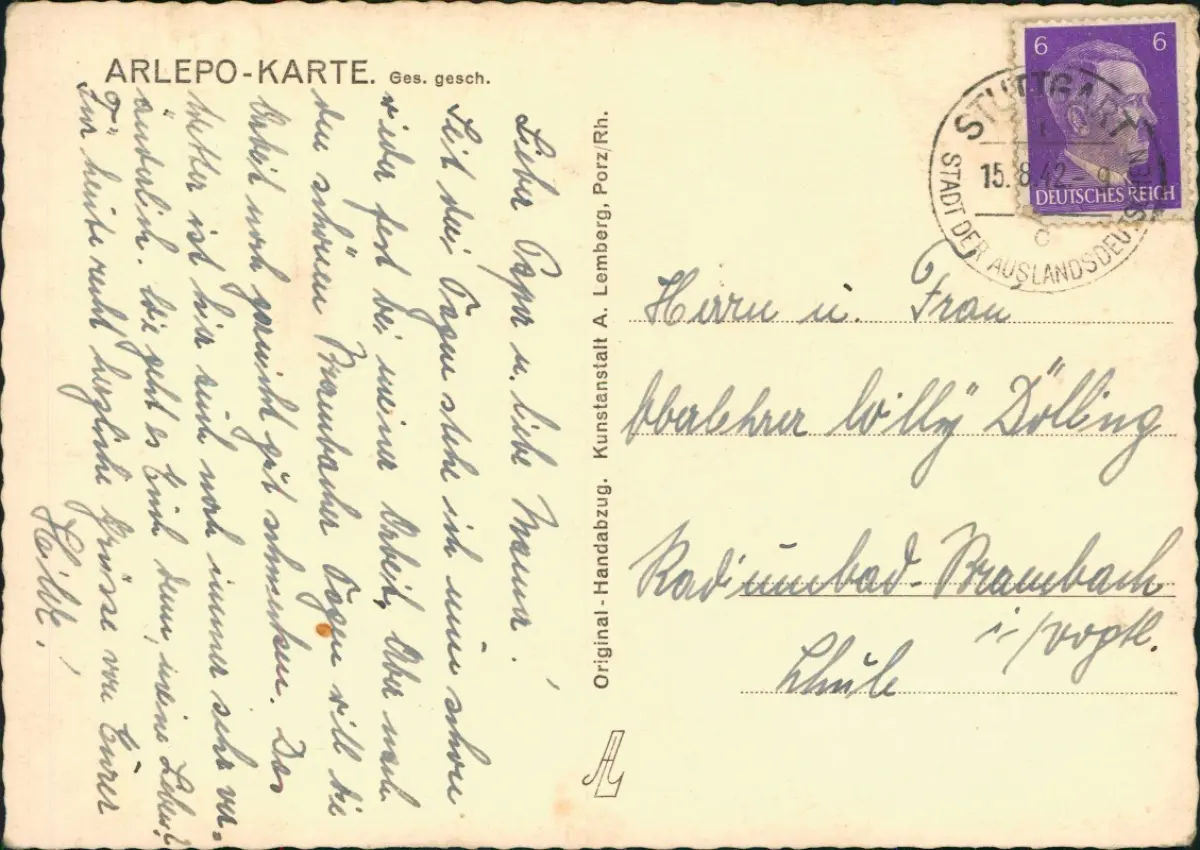 ARLEPO-KARTE. Ges. gesch.
Lieber Papa u. liebe Mama!
Seit drei Tagen stehe ich nun schon
wieder fest bei meiner Arbeit, Aber nach
den schönen Brambacher Tagen will die
Arbeit noch garnicht gut schmecken. Das
Wetter ist hier auch noch immer sehr ver-
änderlich. Wie geht es Euch denn, meine Lieben?
Für heute recht herzliche Grüsse von Eurer
Hilde!
Original-Handabzug. Kunstanstalt A. Lemberg, Porz/Rh.
6 6
DEUTSCHES REICH
STUTTGART
1
15.8.42. 9
c
STADT DER AUSLANDSDEUTSCHEN
Herrn u. Frau
Oberlehrer Willy Dölling
Radiumbad-Brambach
i/Vogtl.
Schule
AL